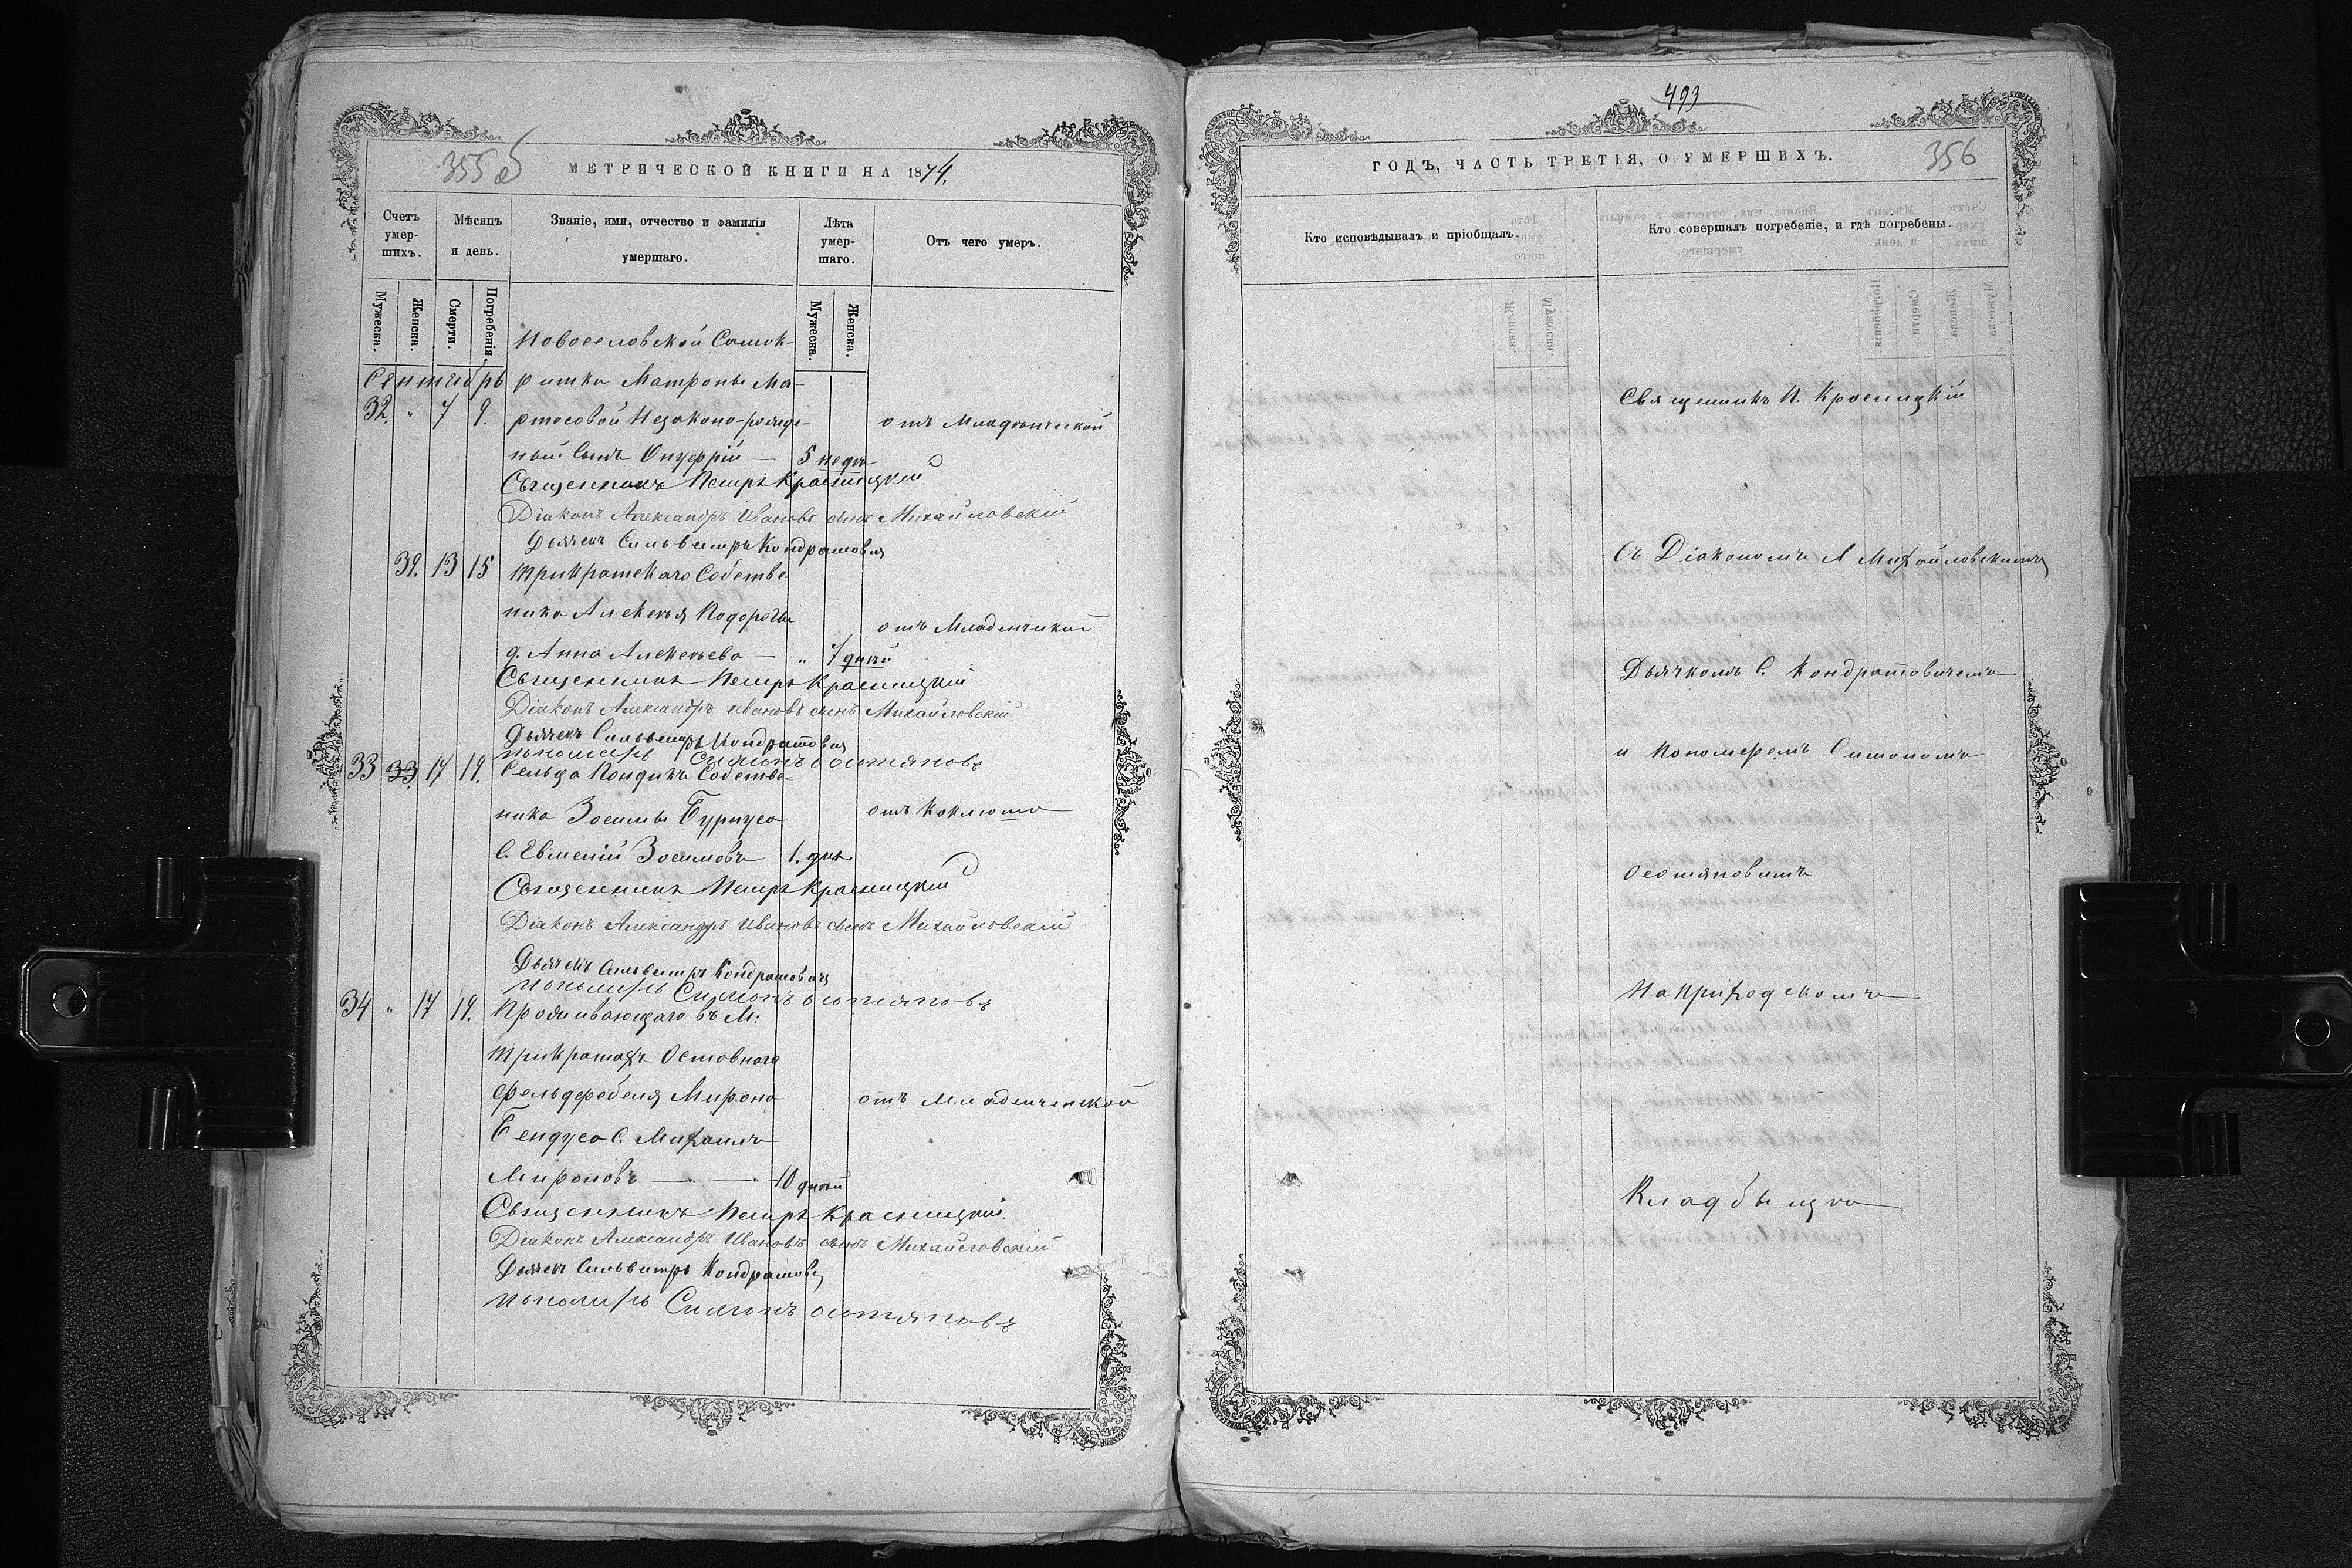 355 об
МЕТРИЧЕСКОЙ КНИГИ НА 1874.
Счетъ умершихъ.
Мѣсяцъ и день.
Званіе, имя, отчество и фамилія умершаго.
Лѣта умершаго.
Отъ чего умеръ.
Мужеска.
Женска.
Смерти.
Погребенія.
Мужеска.
Женска.
Новоселовской Солтк-
Сентябрь
ритки Матроны Ма-
32. " 7 9. ртосовой Незаконо-рожде- отъ Младенческой
ный Сынъ Онуфрій — 5 недѣ
Священникъ Петръ Красницкій
Діаконъ Александръ Ивановъ сынъ Михайловскій
Дьячекъ Сильвестръ Кондратовичъ
39. 13 15 Трикратскаго Собстве-
ника Алексѣя Подорогы
отъ Младенческой
д. Анна Алексѣева — " 7 дней
Священникъ Петръ Красницкій
Діаконъ Александръ Ивановъ сынъ Михайловскій
Дьячекъ Сильвестръ Кондратовичъ
пономарь Симонъ Остяновъ
33 33. 17 19. Сельца Кондикъ Собстве-
ника Зосимы Бурнусо отъ Коклюша
с. Евменій Зосимовъ 1. дня
Священникъ Петръ Красницкій
Діаконъ Александръ Ивановъ сынъ Михайловскій
Дьячекъ Сильвестръ Кондратовичъ
пономарь Симонъ Остяновъ
34 " 17 19. Проживающаго въ М:
Трикратахъ Остовнаго
Фельдфебеля Мирона отъ Младенческой
Бендусо С. Михаилъ
Мироновъ — — 10 дней
Священникъ Петръ Красницкій.
Діаконъ Александръ Ивановъ сынъ Михайловскій
Дьячекъ Сильвестръ Кондратовичъ
пономарь Симонъ Остяновъ
493
ГОДЪ, ЧАСТЬ ТРЕТІЯ, О УМЕРШИХЪ.
356
Кто исповѣдывалъ и пріобщалъ.
Кто совершалъ погребеніе, и гдѣ погребены.
Священникъ П. Красницкій
Съ Діакономъ А Михайловскимъ
Дьячкомъ С. Кондратовичемъ
и Пономаремъ Симономъ
Остяновымъ
На приходскомъ
Кладбыще